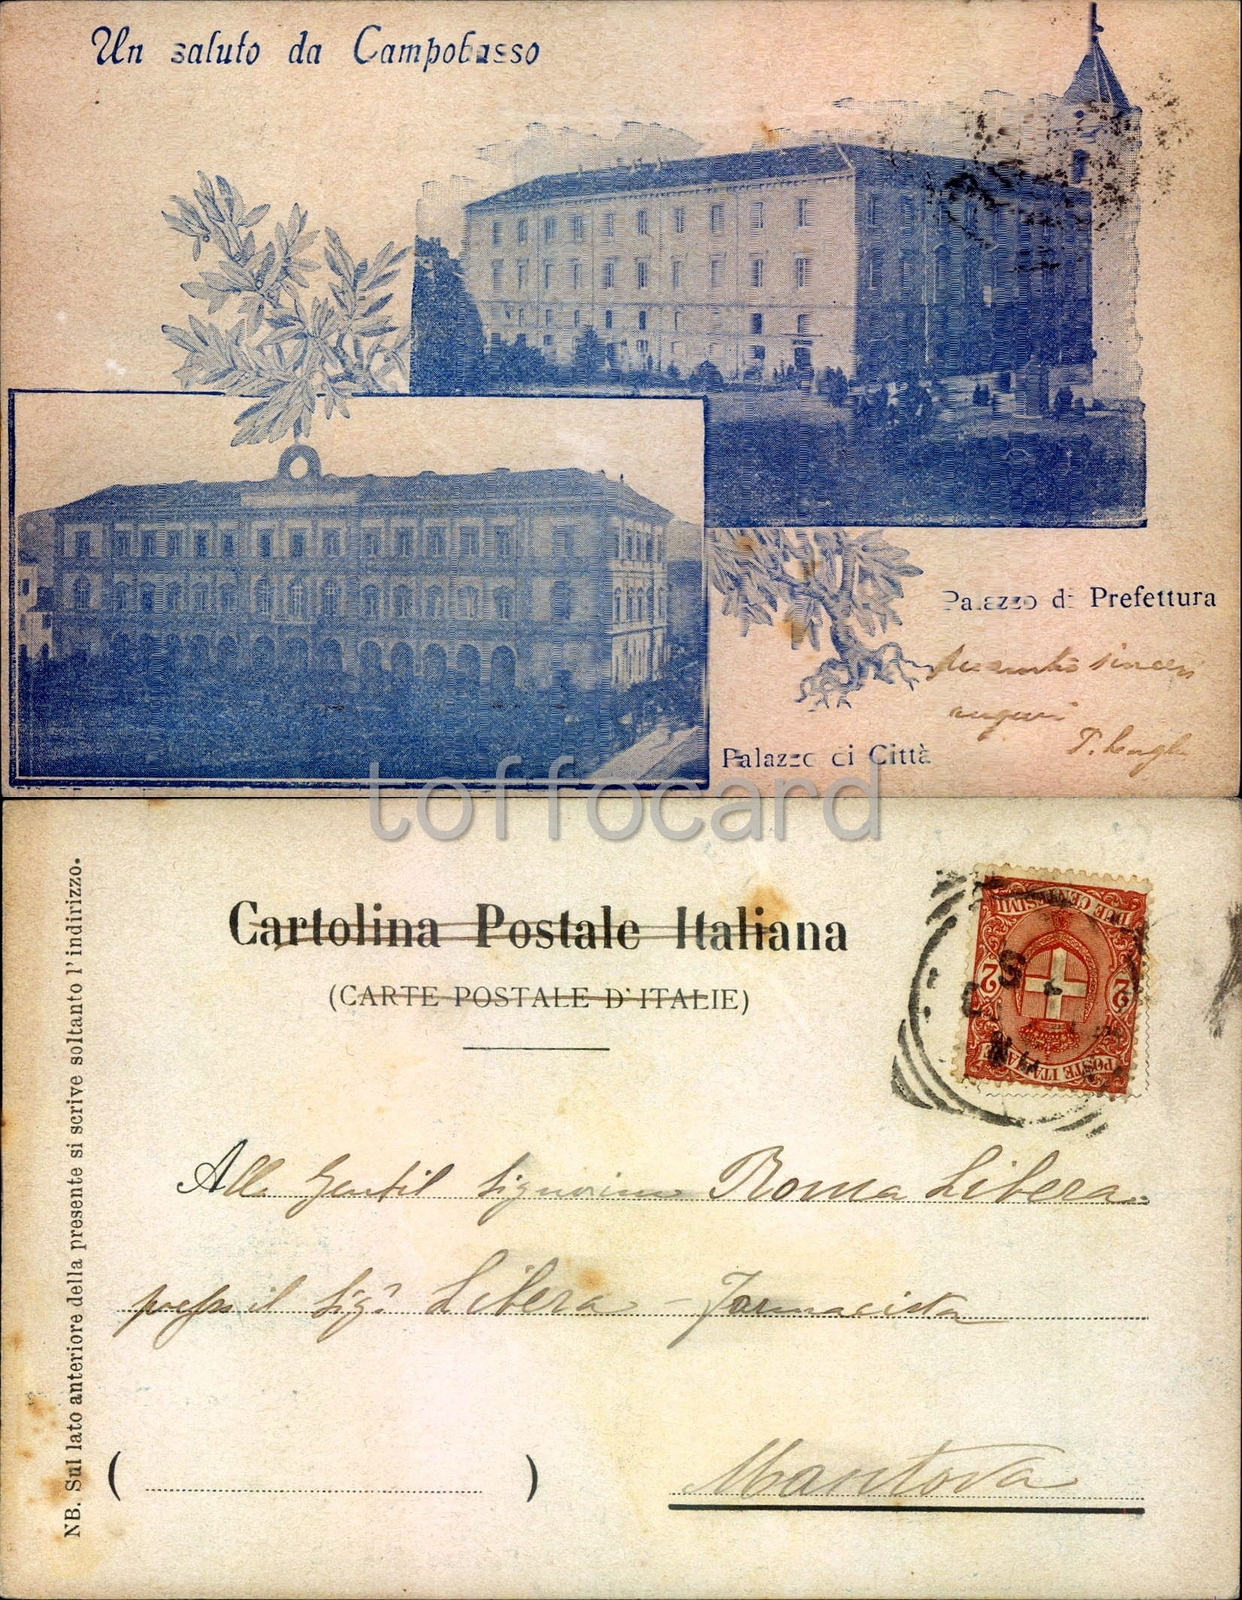 Un saluto da Campobasso
Palazzo di Prefettura
sinceri
auguri
Palazzo di Città
toffocard
Cartolina Postale Italiana
(CARTE POSTALE D'ITALIE)
DUE CENTESIMI
2 2
POSTE ITALIANE
NB. Sul lato anteriore della presente si scrive soltanto l'indirizzo.
Alla Gentil Signorina Roma Libera
presso il Sigr Libera - Farmacista
( )
Mantova